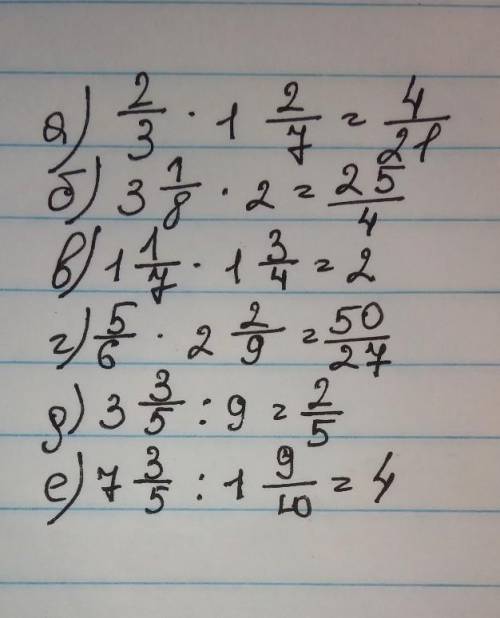 а) 2/3 · 1 2/7 = 4/21
б) 3 1/8 · 2 = 25/4
в) 1 1/7 · 1 3/4 = 2
г) 5/6 · 2 2/9 = 50/27
д) 3 3/5 : 9 = 2/5
е) 7 3/5 : 1 9/10 = 4